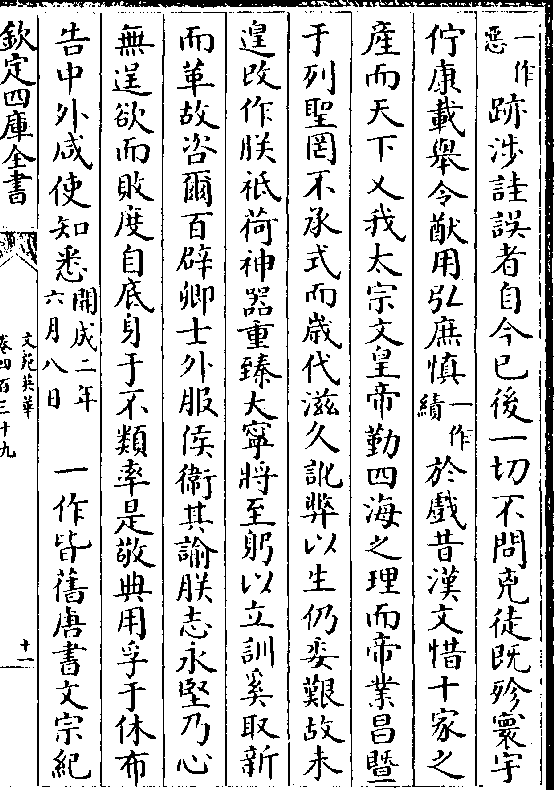 一作惡跡涉詿誤者自今已後一切不問克徒既殄寰宇
佇康載舉令猷用弘庶慎一作績於戲昔漢文惜十家之
產而天下乂我太宗文皇帝勤四海之理而帝業昌暨
于列聖罔不承式而歲代滋久訛弊以生仍委艱故未
遑改作朕祇荷神器重臻大寧將至躬以立訓奚取新
而革故咨爾百辟卿士外服侯衛其諭朕志永堅乃心
無逞欲而敗度自底身于不類率是敬典用孚于休布
告中外咸使知悉開成二年六月八日 一作皆舊唐書文宗紀
欽定四庫全書
文苑英華
卷四百三十九
十一